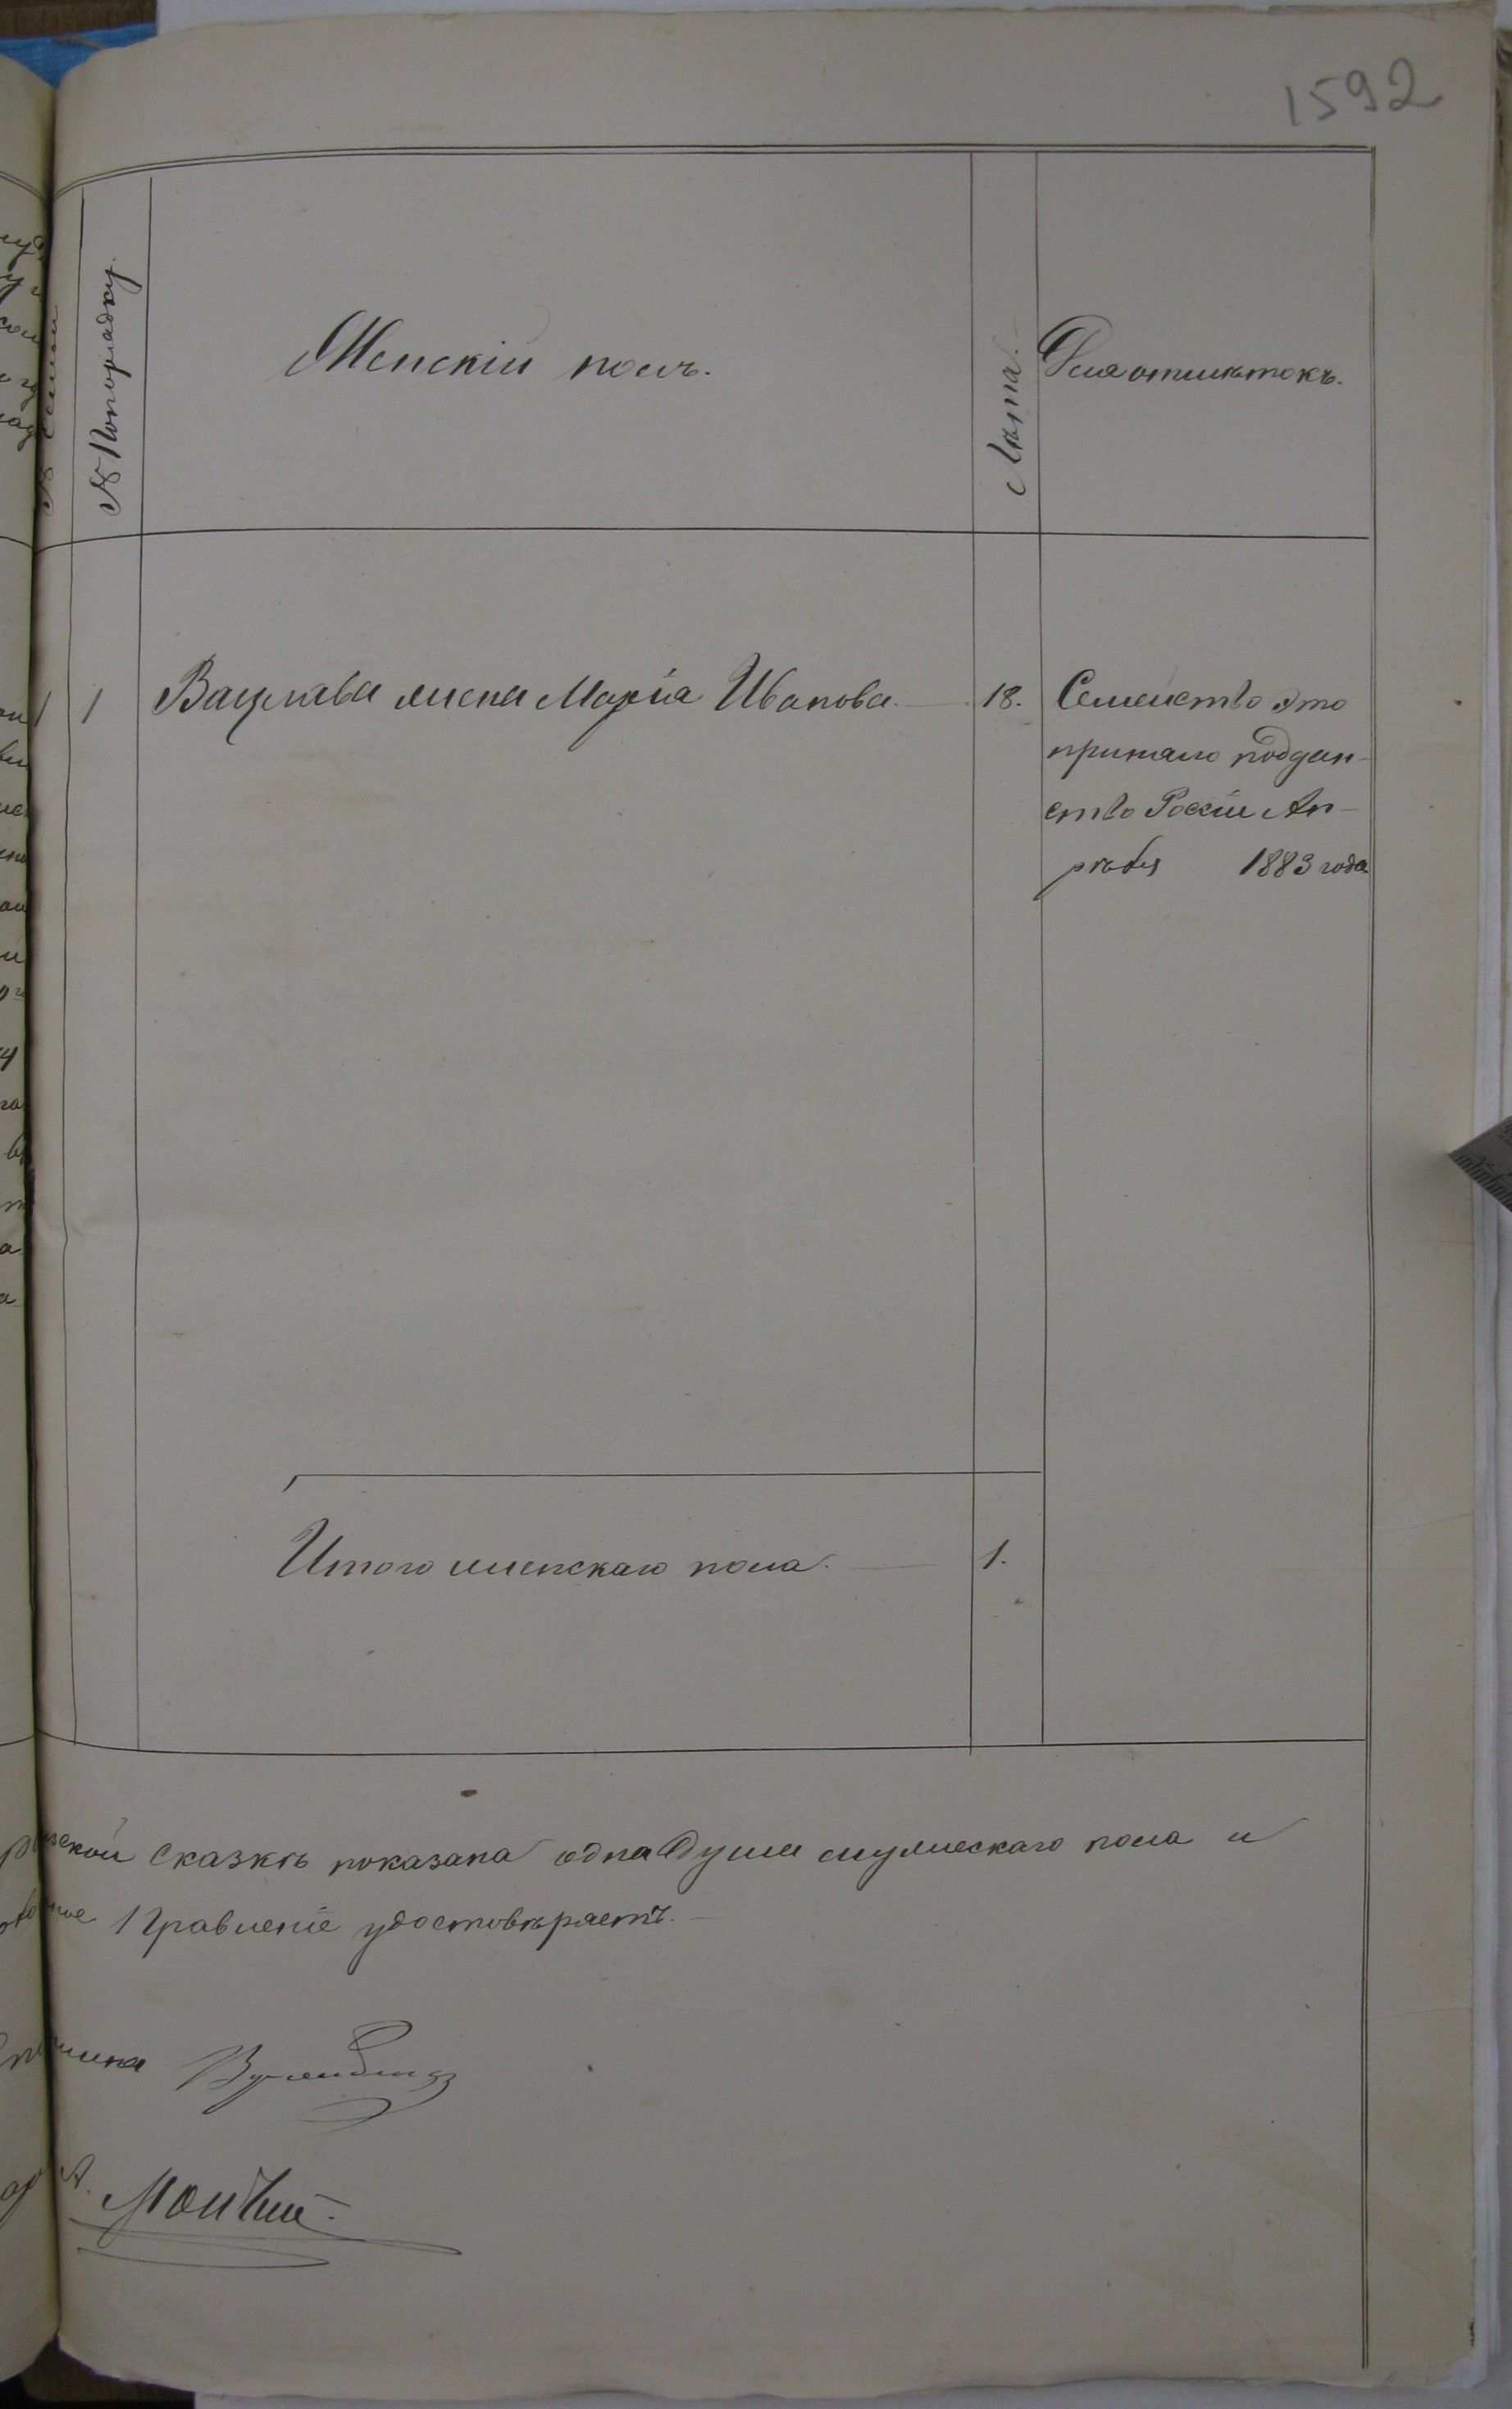 1592
№ семьи
№ По порядку.
Женскій полъ.
Лѣта.
Для отмѣтокъ.
1 1 Вацлава жена Марія Иванова. 18. Семейство это
приняло поддан-
ство Росіи Ап-
рѣля 1883 года
Итого женскаго пола. 1.
сказкѣ показана одна душа мужескаго пола и
Правленіе удостовѣряетъ.